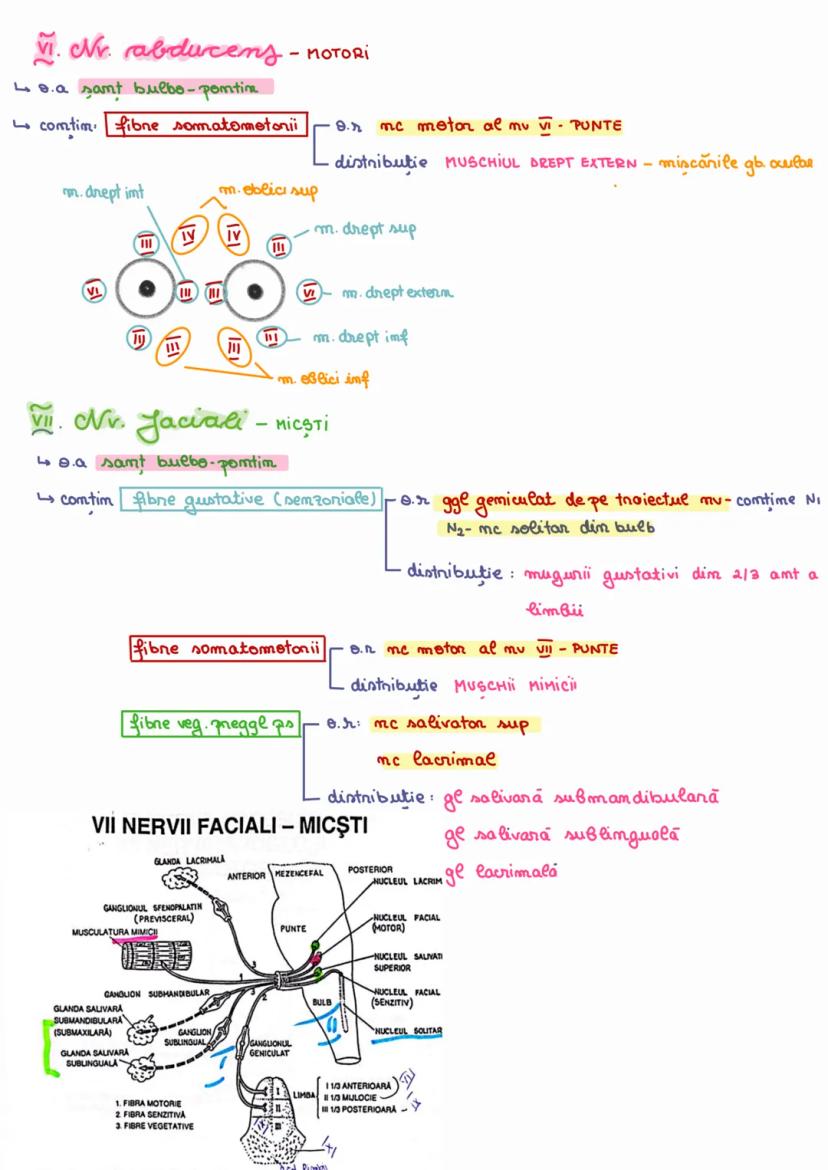 VI. Nv. abducens - MOTORI
↳ o.a șanț bulbo-pontin
↳ conțin: fibre somatomotorii o.r nc motor al nv VI - PUNTE
distribuție MUSCHIUL DREPT EXTERN - mișcările gb. oculare
m. drept int m. oblici sup
III IV IV III m. drept sup
VI III III VI m. drept extern
III III III III m. drept inf
m. oblici inf
VII. Nv. faciali - MICȘTI
↳ o.a șanț bulbo-pontin
↳ conțin fibre gustative (senzoriale) o.r ggl geniculat de pe traiectul nv - conține N1
N2 - nc solitar din bulb
distribuție : mugurii gustativi din 2/3 ant a
limbii
fibre somatomotorii o.r nc motor al nv VII - PUNTE
distribuție MUȘCHII MIMICII
fibre veg. preggl ps o.r: nc salivator sup
nc lacrimal
distribuție: gl salivară submandibulară
gl salivară sublinguală
gl lacrimală
VII NERVII FACIALI – MICȘTI
GLANDA LACRIMALĂ
ANTERIOR MEZENCEFAL POSTERIOR
NUCLEUL LACRIM
GANGLIONUL SFENOPALATIN
(PREVISCERAL)
MUSCULATURA MIMICII
PUNTE
NUCLEUL FACIAL
(MOTOR)
NUCLEUL SALIVATI
SUPERIOR
3
1
2
GANGLION SUBMANDIBULAR
NUCLEUL FACIAL
(SENZITIV)
GLANDA SALIVARĂ
SUBMANDIBULARĂ
(SUBMAXILARĂ)
BULB
II
GANGLION
SUBLINGUAL
NUCLEUL SOLITAR
GLANDA SALIVARĂ
SUBLINGUALĂ
GANGLIONUL
GENICULAT
I
1. FIBRA MOTORIE
2. FIBRA SENZITIVĂ
3. FIBRE VEGETATIVE
I
II
III
LIMBA
I 1/3 ANTERIOARĂ
II 1/3 MIJLOCIE
III 1/3 POSTERIOARĂ - IX
VII
IX